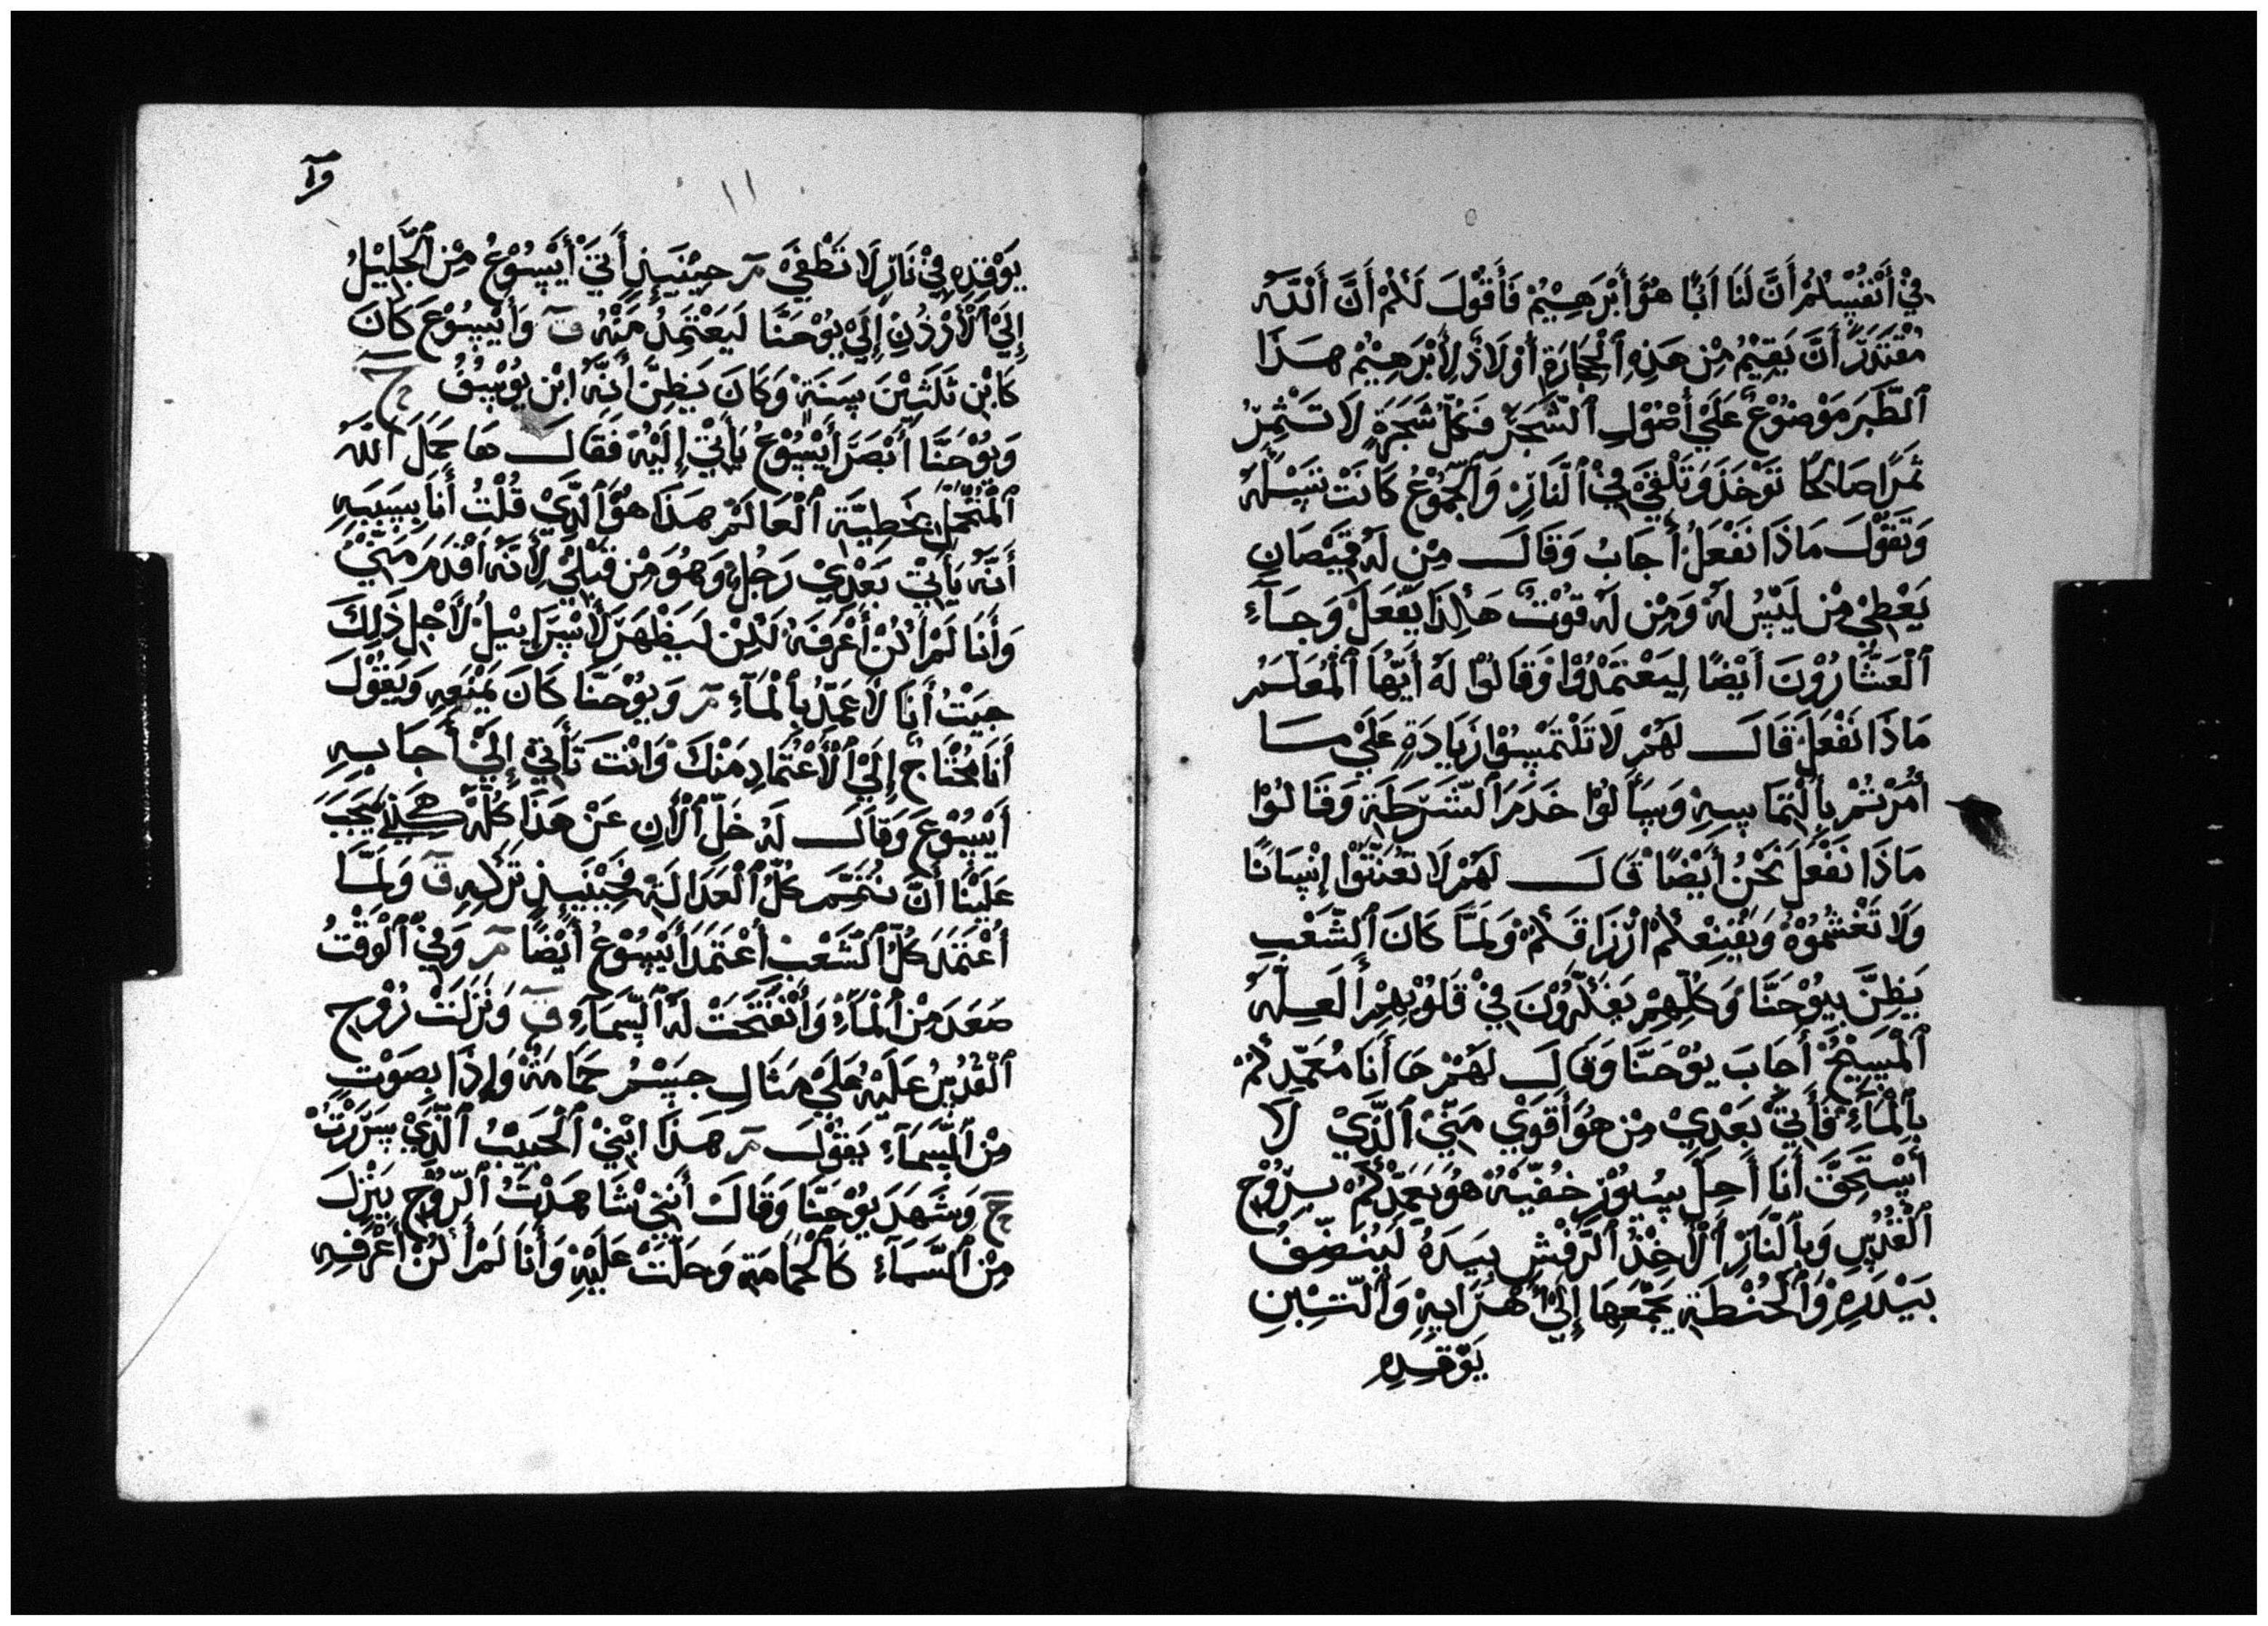 فِيْ أَنْفُسِكُمْ أَنَّ لَنَا أَبًا هُوَ أَبْرَهِيْمُ فَأَقُوْلَ لَكُمْ أَنَّ أَللَّهَ
مُقْتَدَرٌ أَنَّ يَقِيْمُ مِنْ هَذِهِ ٱلْحِجَارَةِ أَوْلَادًا لِأَبْرَهِيْمُ هَذَا
ٱلطَّبَرَ مَوْضُوْعٌ عَلَيْ أُصُوْلِ ٱلشَّجَرِ فَكُلُّ شَجَرَةٍ لَا تَثْمِرُ
ثَمَرًا صَالِحًا تَوْخَذَ وَتَلْقَيَ فِيْ ٱلنَّارِ وَٱلْجُمُوْعُ كَانَتْ تَسْأَلُهُ
وَتَقَوْلَ مَاذَا نَفْعَلُ أَجَابُ وَقَالَ مِنْ لَهُ قَمِيْصَانِ
يَعْطِيْ مِنْ لَيْسُ لَهُ وَمِنْ لَهُ قُوْتٌ هَكِذَا يَفْعَلُ وَجَآءِ
ٱلْعَشَّارُوْنَ أَيْضًا لِيَعْتَمَدُوْا وَقَالُوْا لَهُ أَيُّهَا ٱلْمُعَلِّمُ
مَاذَا نَفْعَلُ قَالَ لَهُمْ لَا تَلْتَمِسُوْا زَيَادَةٍ عَلَيْ مَا
أُمُرْتُمْ بِأَلْتِمَاسِهِ وَسَأَلُوْا خَدَمَ ٱلشَّرَطَةِ وَقَالُوْا
مَاذَا نَفْعَلَ نَحْنُ أَيْضًا قَالَ لَهُمْ لَا تَعْنِتُوْا إِنْسَانًا
وَلَا تَغْشُمُوْهُ وَيَقْنِعْكُمْ أَرْزَاقَكُمْ وَلَمَّا كَانَ ٱلشَّعْبِ
يَظِنَّ بِيُوْحَنَّا وَكُلِّهِمْ يَفَكِّرُوْنَ فِيْ قَلُوْبِهِمْ أَلَعِلَّهُ
ٱلْمَسِيْحُ أَجَابَ يُوْحَنَّا وَقَالَ لَهُمْ هَا أَنَا مُعَمِّدِكُمْ
بِٱلْمَآءِ فَأَتِيَ بَعْدِيْ مِنْ هُوَ أَقْوَيْ مَنِّيْ ٱلَّذِيْ لَا
أَسْتَحِقَّ أَنَا أَحِلَّ سِيُوْرِ خُفِّيْهُ هُوَ يَعَمِّدَكُمْ بِرُوْحِ
ٱلْقُدُسِ وَبِٱلنَّارِ ٱلْأَخِذُ ٱلرَّفْشِ بِيَدَهُ لَيَنَضِّفَ
بَيْدَرِهِ وَٱلْحُنْطَةِ يَجْمَعِهَا إِلَيْ أَهْرَايِهِ وَٱلتِّبْنِ
يَوْقِدِهِ
وآ
١١
يَوْقِدِهِ فِيْ نَارِ لَا تَطْفَيَ مـ حِيْنَيِذٍ أَتَيَ أَيْسُوْعُ مِنْ ٱلْجَلِيْلِ
إِلَيْ ٱلْأَرْدُنِ إِلَيْ يُوْحَنَّا لَيَعْتَمِدُ مَنْهُ ق وَأَيْسُوْعَ كَانَ
كَابْنِ ثَلَثِيْنَ سَنَةْ وَكَانَ يَظِنَّ أَنَّهُ ابْنِ يُوْسُفُ ح
وَيُوْحَنَّا أَبْصَرَ أَيْسُوْعُ يَأْتِيْ إِلَيْهُ فَقَالَ هَا حَمَلَ أَللَّهُ
ٱلْمُتَحَمِّلِ بِخَطِيَّةِ ٱلْعَالَمْ هَذَا هُوَ ٱلَّذِيْ قُلْتُ أَنَا بِسَبَبِهِ
أَنَّهُ يَأْتِيْ بَعْدِيْ رَجُلٌ وَهُوَ مِنْ قَبْلِيْ لِأَنَّهُ أَقْدَمَ مَنِّيْ
وَأَنَا لَمْ أَكُنْ أَعْرَفَهُ لَكِنْ لَيَظْهَرَ لِأَسْرَايِيْلُ لِأَجِلِ ذَلِكَ
جِيَتْ أَنَا لِأَعَمِّدُ بِٱلْمَآءِ مـ وَيُوْحَنَّا كَانَ يَمْنَعِهِ وَيَقُوْلَ
أَنَا مُحْتَاجٌ إِلَيْ ٱلْأَعْتِمَادِ مَنْكَ وَانْتَ تَأْتِيْ إِلَيَّ أَجَابِهِ
أَيْسُوْعَ وَقَالَ لَهُ خَلِّ ٱلْأَنِ عَنْ هَذَا كُلِّهْ هَكَذَيْ يَجَبَ
عَلَيْنَا أَنَّ نُتَمِّمَ كُلُّ ٱلْعَدَالَةْ فَحِيْنَيِذٍ تَرَكِهِ ق وَلَمَّا
أَعْتَمَدَ كُلُّ ٱلشَّعْبِ أَعْتَمَدَ أَيْسُوْعُ أَيْضًا مـ وَفِيْ ٱلْوَقْتُ
صَعَدَ مِنْ ٱلْمَآءِ وَأَنْفَتَحَتْ لَهُ ٱلسَّمَآءِ ق وَنَزَلَتْ رُوْحِ
ٱلْقُدُسِ عَلَيْهُ عَلَيْ مَثَالِ جِسْمُ حَمَامَةْ وَإِذَا بِصَوْتٍ
مِنْ ٱلسَّمَآءِ يَقُوْلَ مـ هَذَا ابْنِيْ ٱلْحَبِيْبُ ٱلَّذِيْ سَرَّرْتُ
ح وَشَهَدَ يُوْحَنَّا وَقَالَ أَنَنِيْ شَاهَدْتُ ٱلرُّوْحِ يَنْزِلَ
مِنْ ٱلسَّمَآءِ كَالْحَمَامَةِ وَحَلَّتْ عَلَيْهِ وَأَنَا لَمْ أَكُنْ أَعْرَفِهِ